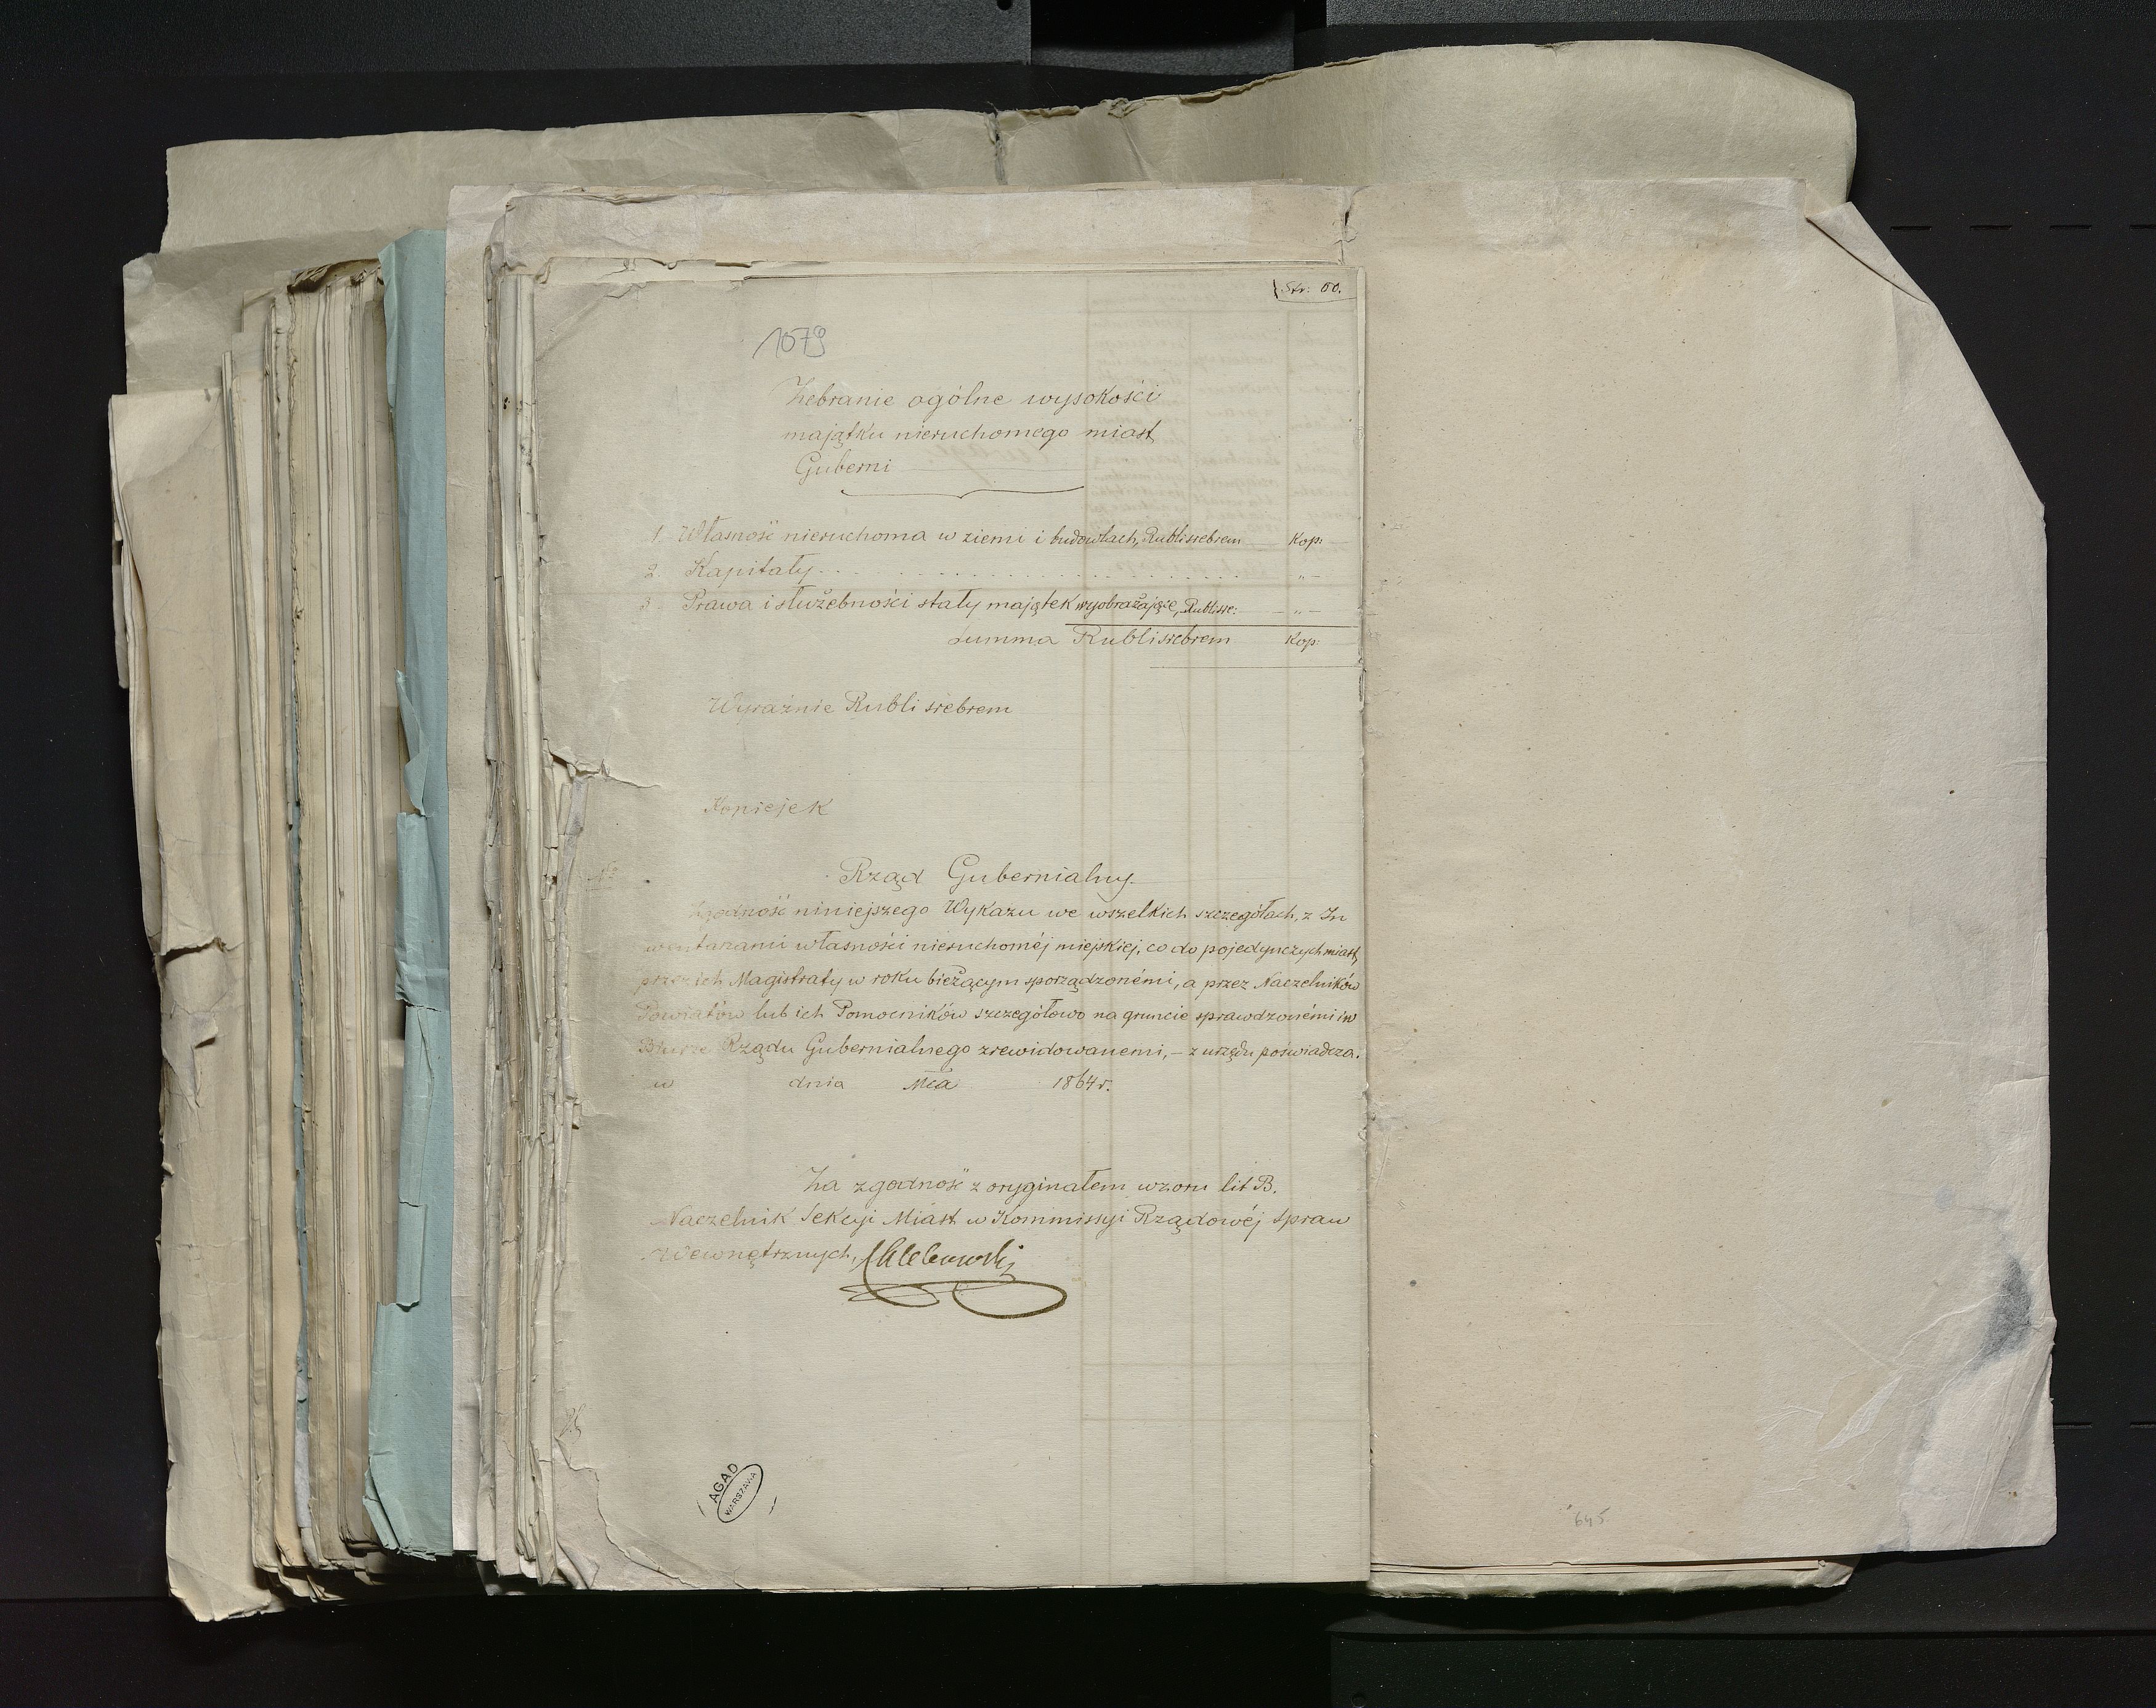 Str: 00.
1079
Zebranie ogólne wysokości
majątku nieruchomego miast
Guberni
1. Własność nieruchoma w ziemi i budowlach, Rubli srebrem Kop:
2. Kapitały . . . . . . . . . . . . . . . . . . . . . . . . „ —
3. Prawa i służebności stały majątek wyobrażające, Rubli sre: — „ —
Summa Rubli srebrem Kop:
Wyraźnie Rubli srebrem
Kopiejek
No
Rząd Gubernialny.
Zgodność niniejszego Wykazu we wszelkich szczegółach, z In
wentarzami własności nieruchoméj miejskiej, co do pojedynczych miast,
przez ich Magistraty w roku bieżącym sporządzonémi, a przez Naczelników
Powiatów lub ich Pomocników szczegółowo na gruncie sprawdzonémi i w
Biurze Rządu Gubernialnego zrewidowanemi, — z urzędu poświadcza.
w dnia Mca 1864 r.
Za zgodność z oryginałem wzoru lit B.
Naczelnik Sekcyi Miast w Kommissyi Rządowéj Spraw
Wewnętrznych,
AGAD
WARSZAWA
645